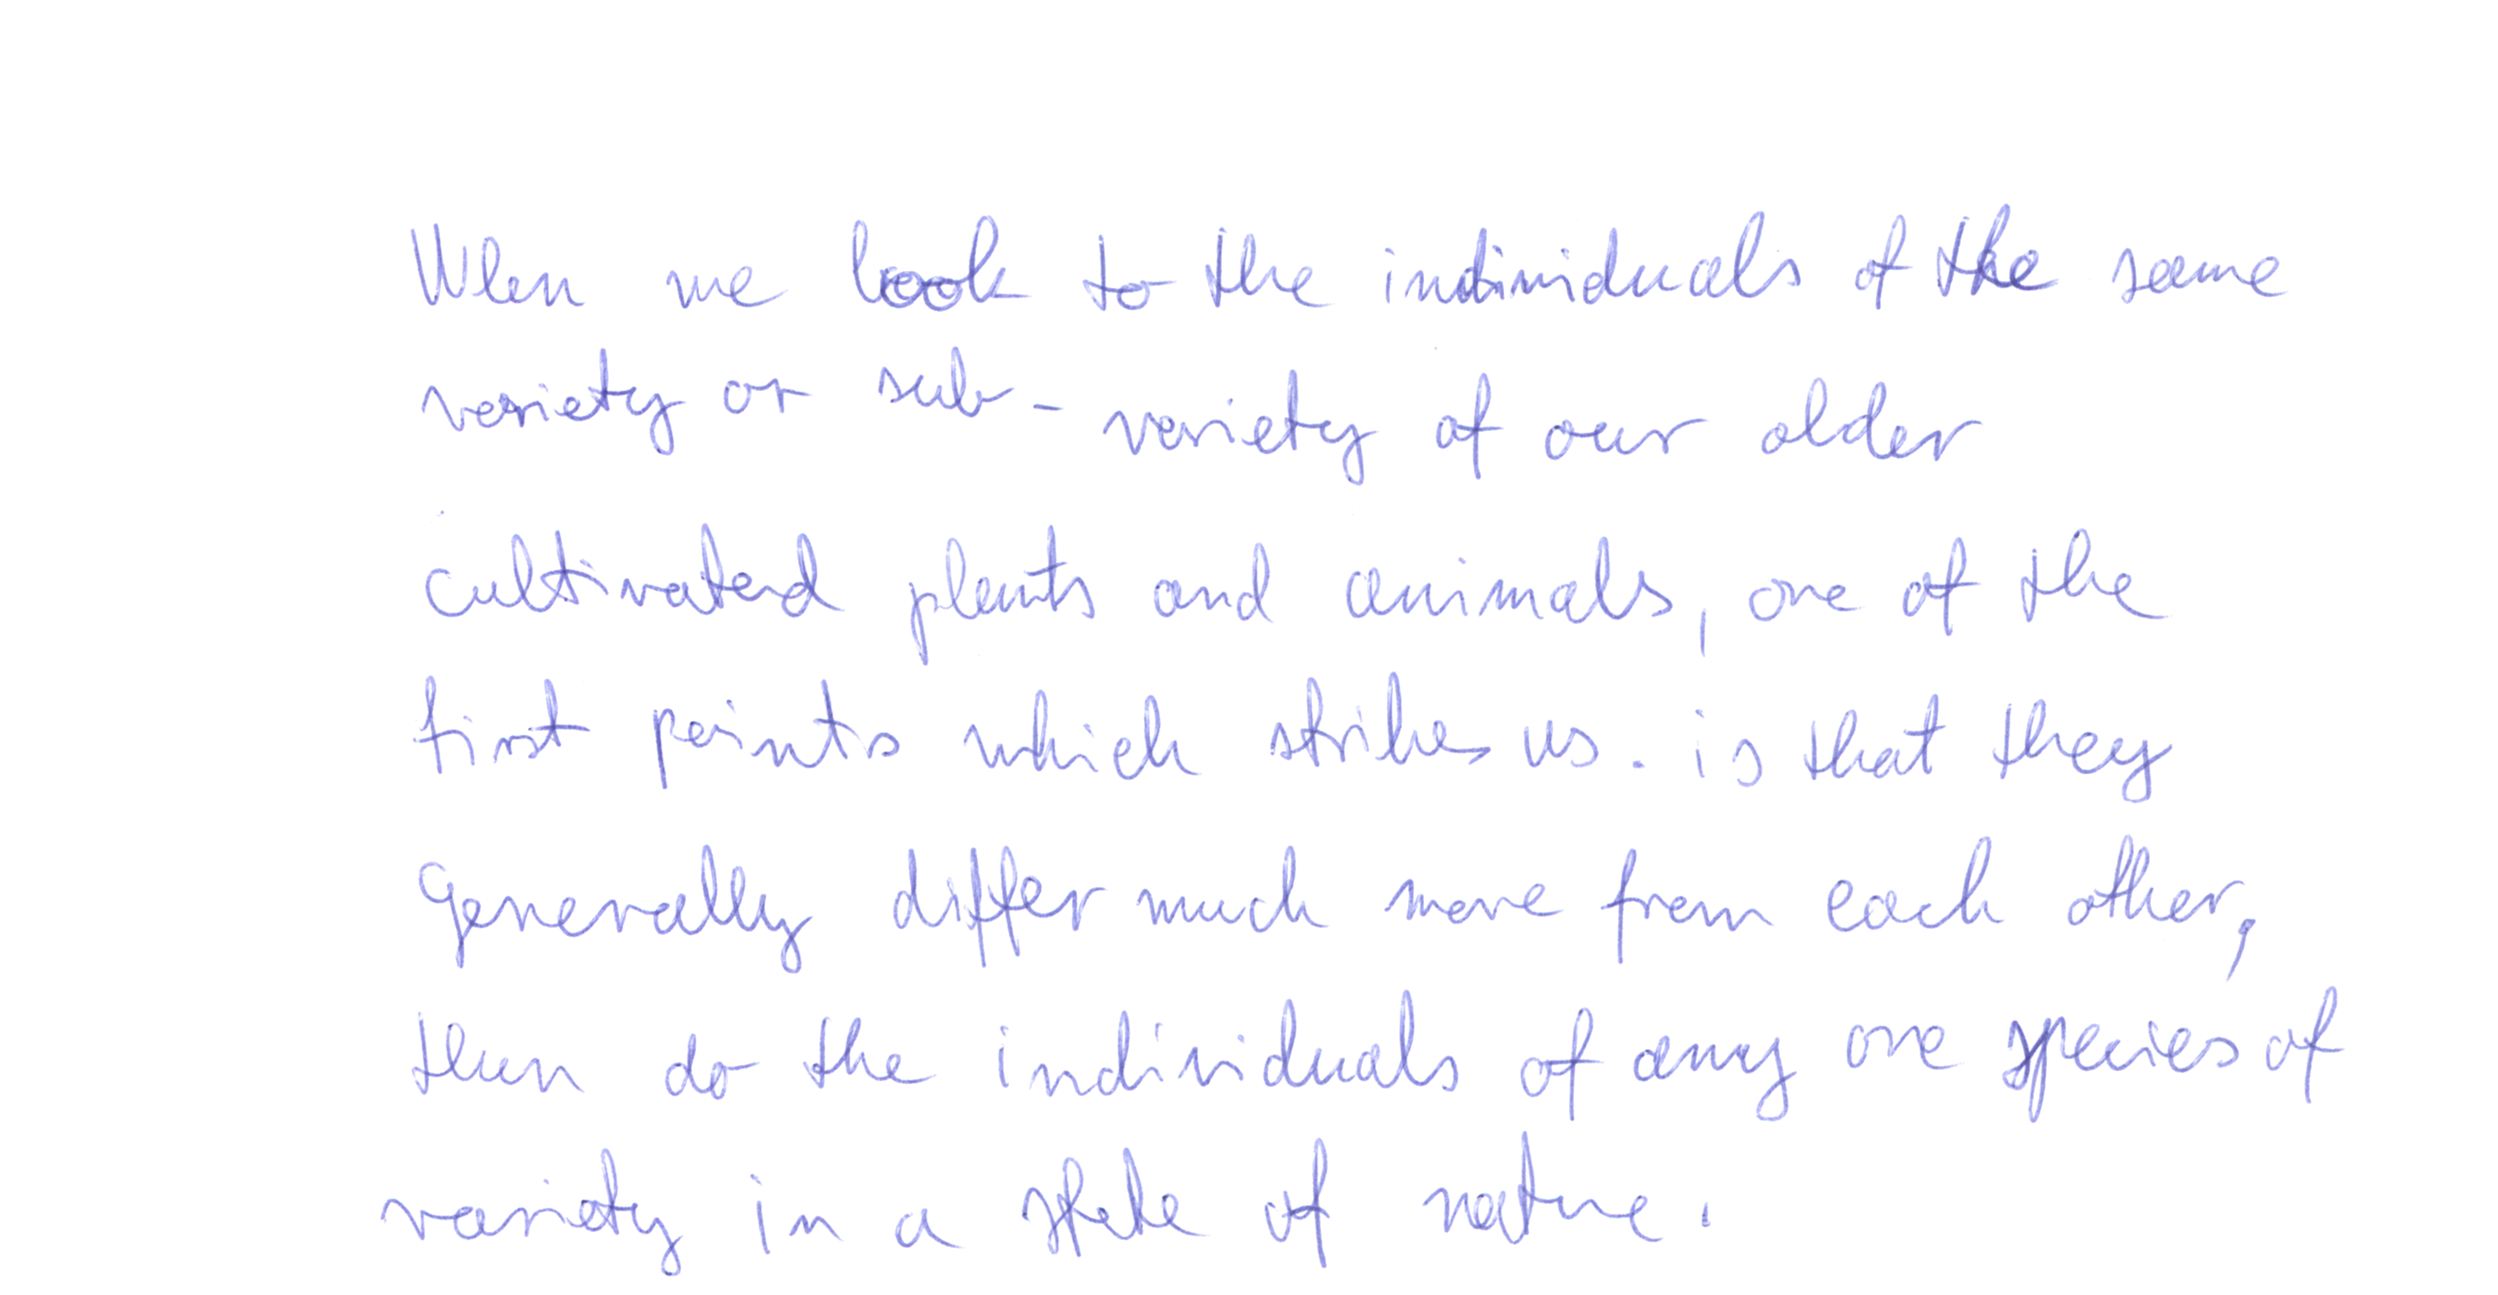 When we look to the individuals of the same
variety or sub-variety of our older
cultivated plants and animals, one of the
first points which strikes us. is that they
generally differ much more from each other,
than do the individuals of any one species of
variety in a state of nature.